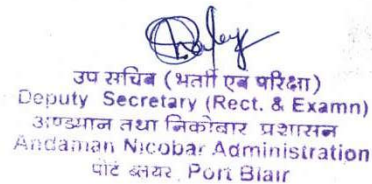 उप सचिव (भर्ती एव परिक्षा)
Deputy Secretary (Rect. & Examn)
अण्डमान तथा निकोबार प्रशासन
Andaman Nicobar Administration
पोर्ट ब्लयर, Port Blair